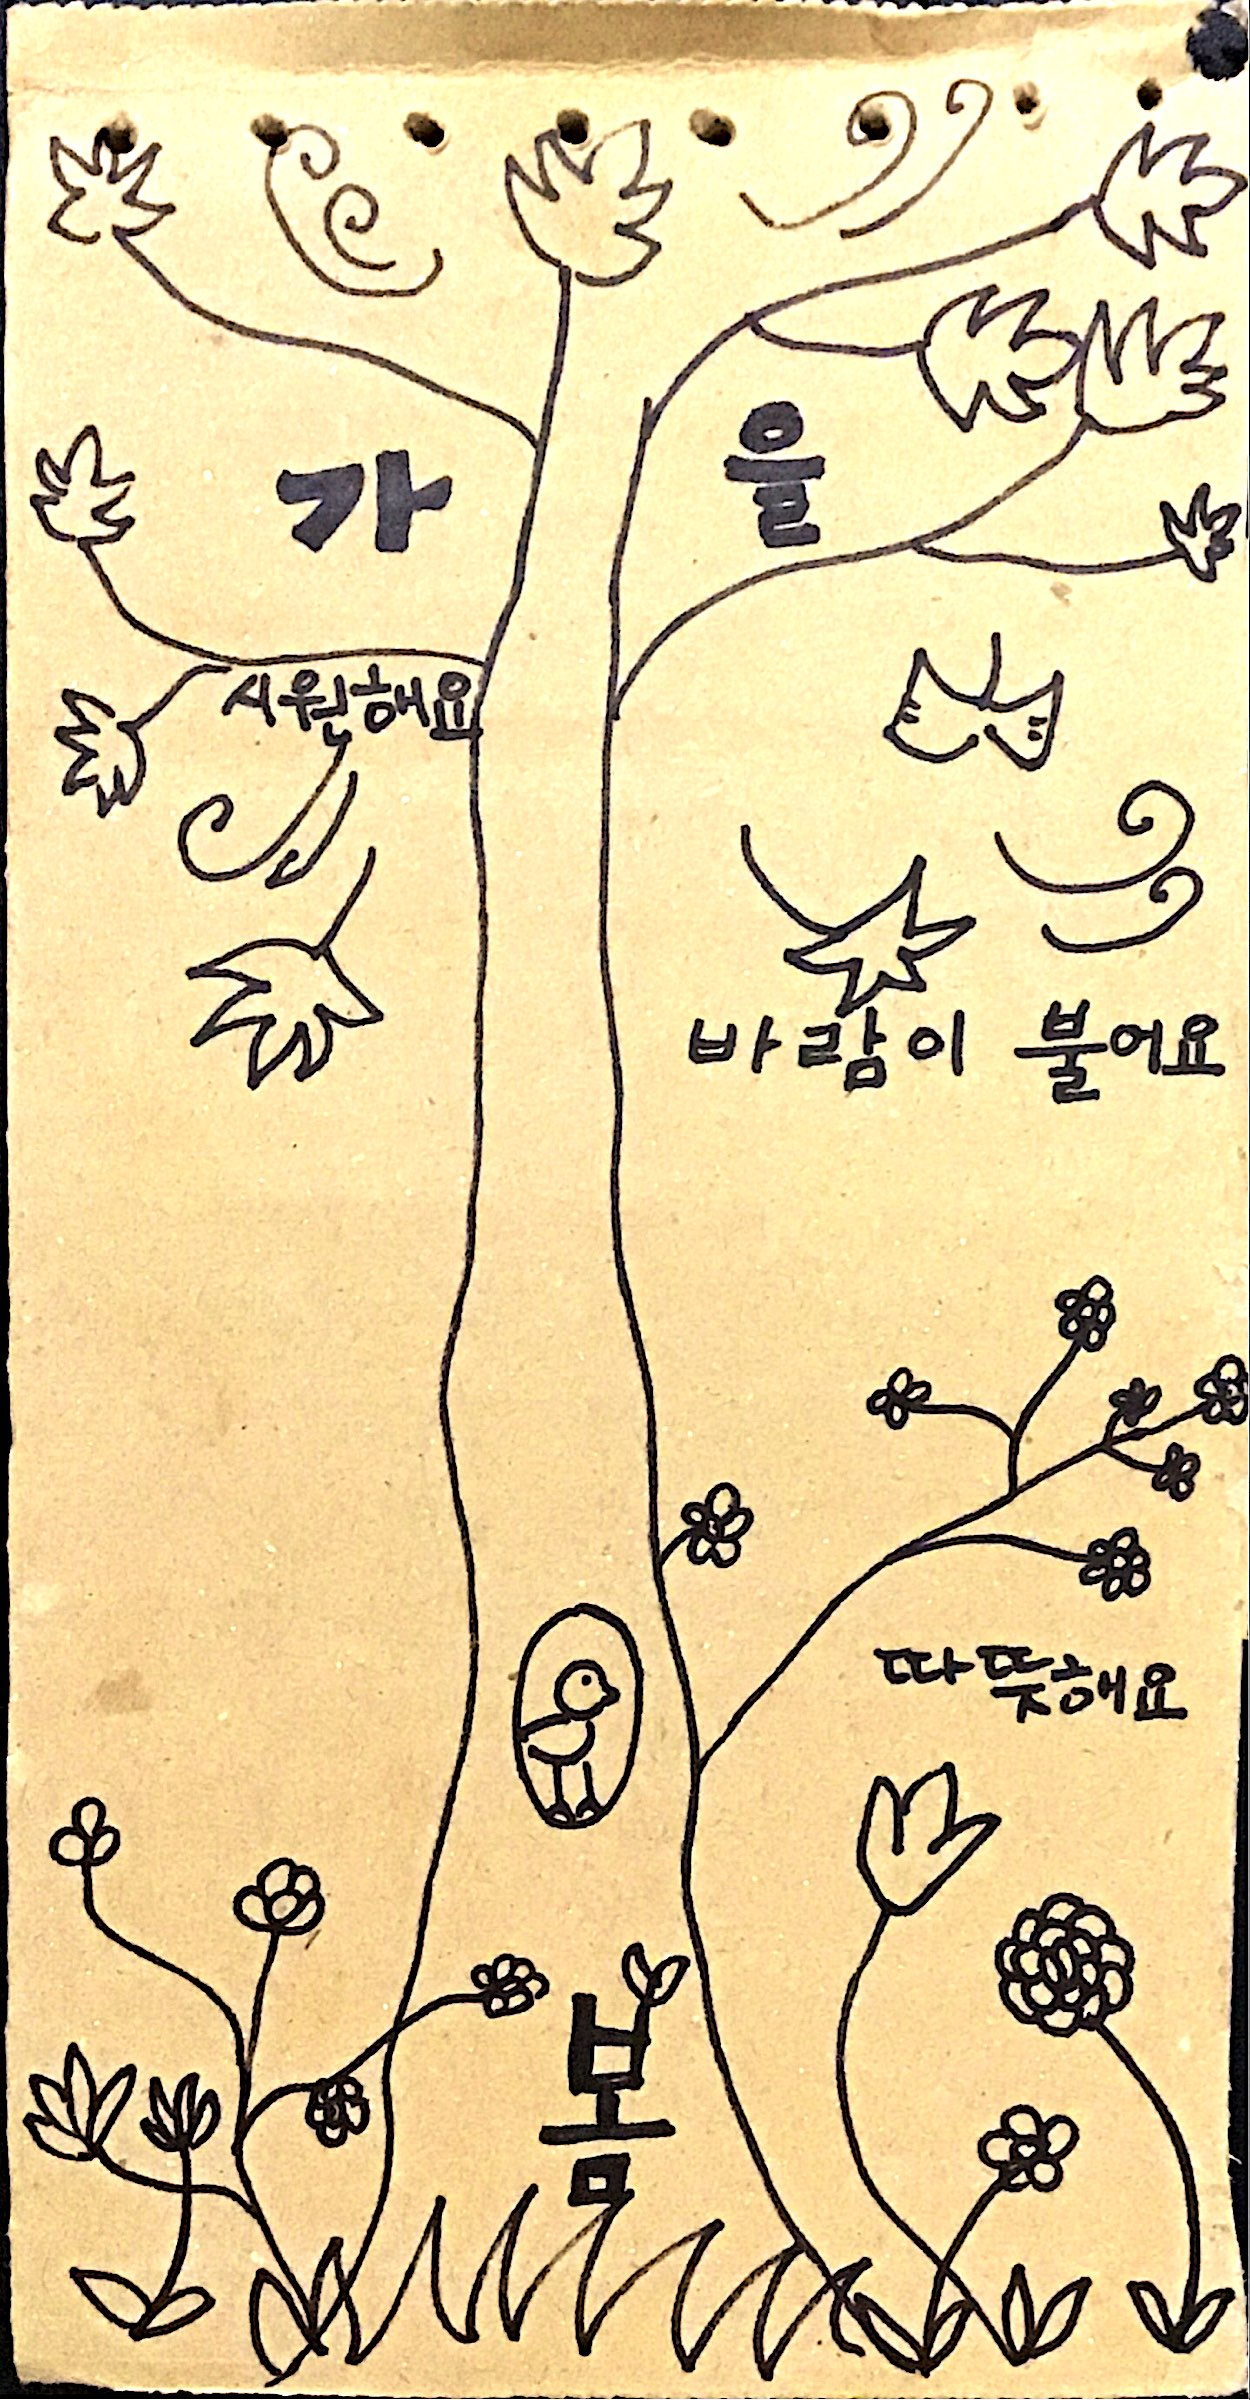 가 을
시원해요
바람이 불어요
따뜻해요
봄